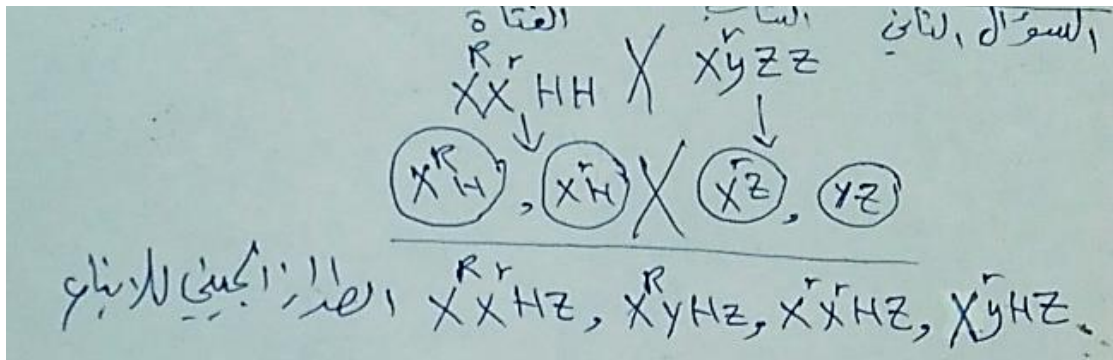 السؤال الثاني الشاب الفتاة
X^R X^r HH X X^r y ZZ
X^R H , X^r H X X^r Z , yZ
الطراز الجيني للأبناء X^R X^r HZ , X^R y HZ , X^r X^r HZ , X^r y HZ .